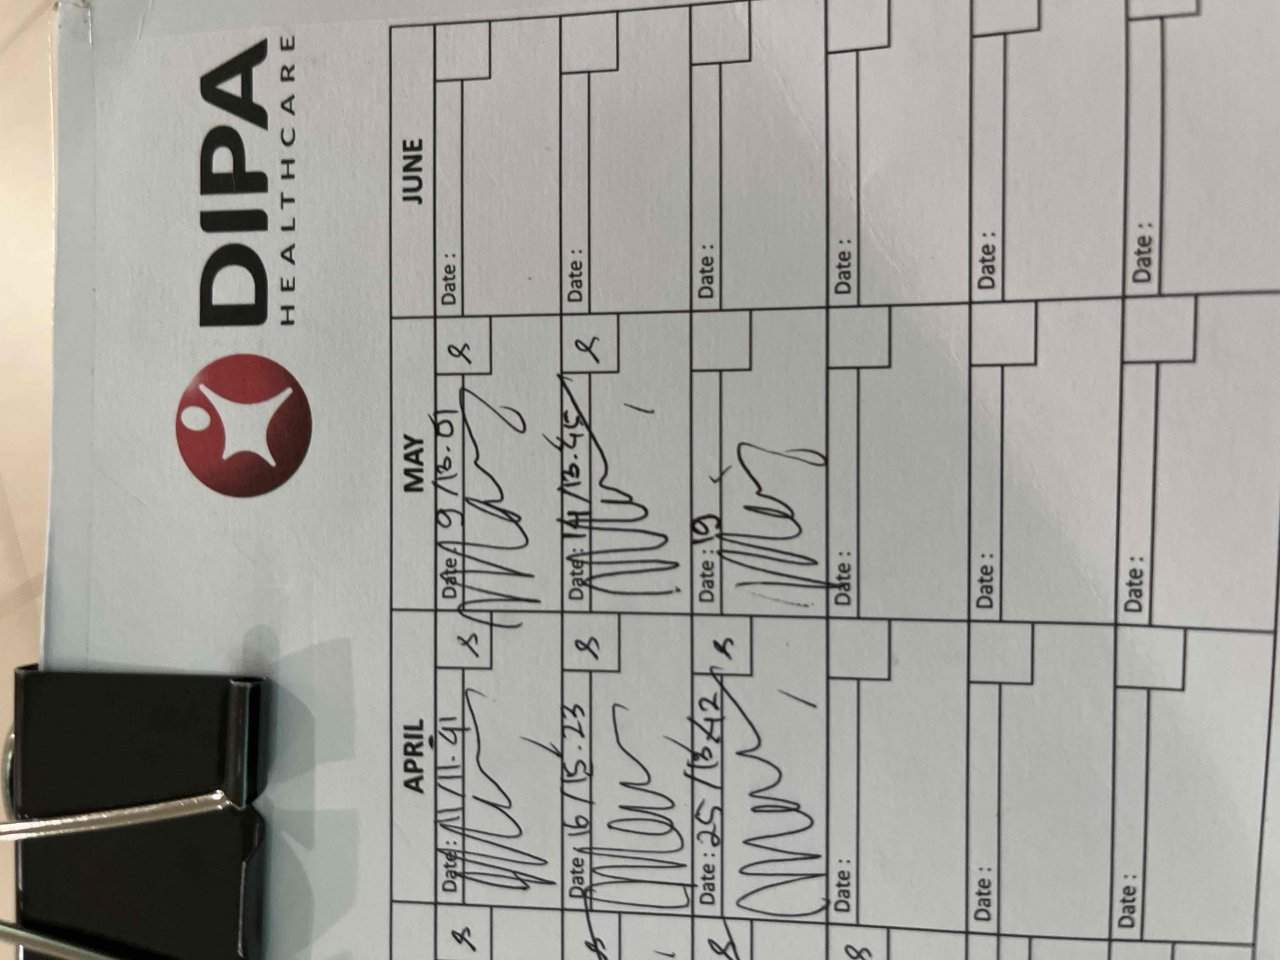 DIPA
HEALTHCARE
APRIL MAY JUNE
Date : 11/11.41 S Date : 9/13.01 S Date :
Date : 16/15.23 S Date : 14/13.45 S Date :
Date : 25/13.42 S Date : 19 Date :
Date : Date : Date :
Date : Date : Date :
Date : Date : Date :